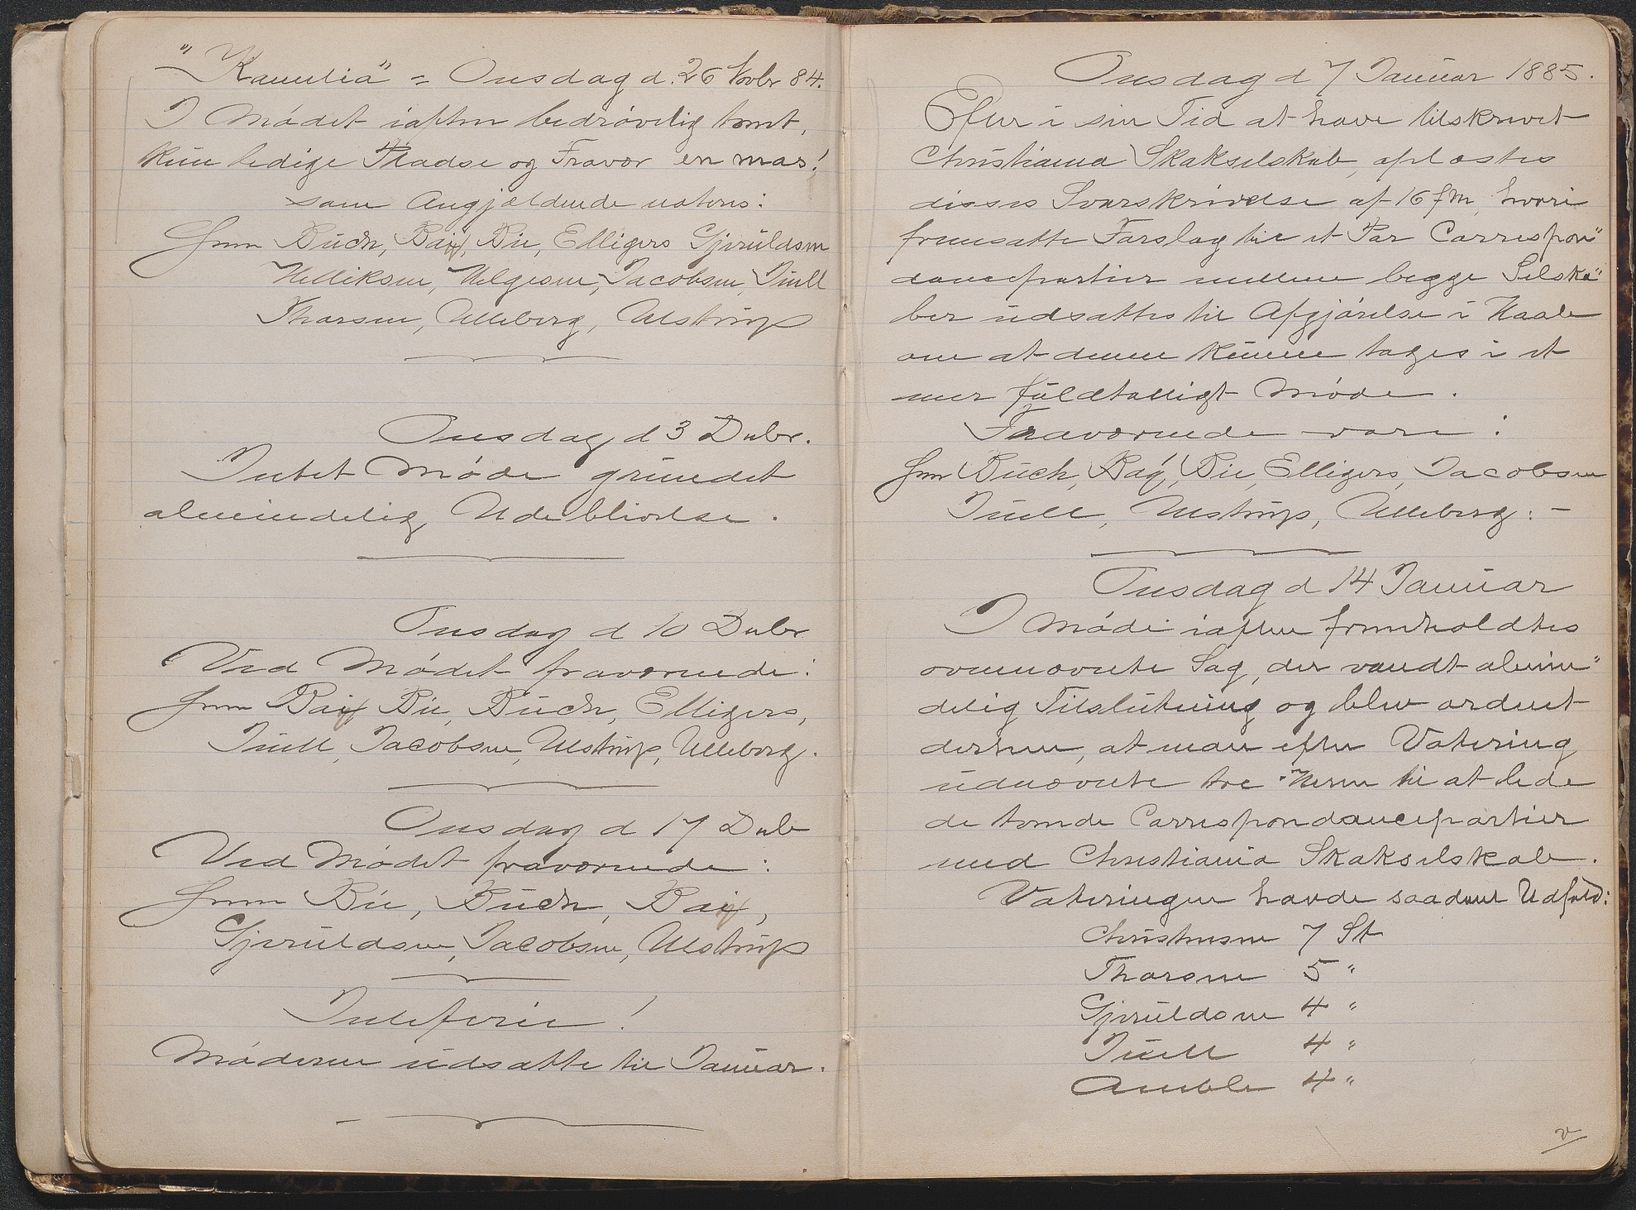 "Kamilia" = Onsdag d. 26 Novbr 84.
I Mødet iaften bedrøvelig tomt,
kun ledige Pladse og Fravær en mas!
som Angjældende noteres:
Hrrr Buch, Baÿ, Bie, Elligers Gjeruldsen
Helliksen, Helgesen, Jacobsen, Juell
Thorsen, Ulleberg, Ulstrup
Onsdag d 3 Decbr.
Intet Møde grundet
almindelig Udeblivelse.
Onsdag d 10 Decbr
Ved Mødet fraværende:
Hrrr Baÿ Bie, Buch, Elligers,
Juell, Jacobsen, Ulstrup, Ulleberg.
Onsdag d 17 Decbr
Ved Mødet fraværende:
Hrrr Bie, Buch, Baÿ,
Gjeruldsen, Jacobsen, Ulstrup
Juleferie!
Møderne udsatte til Januar.
Onsdag d 7 Januar 1885.
Efter i sin Tid at have tilskrevet
Christiania Skakselskab, oplæstes
disses Svarskrivelse af 16 f M, hvori
fremsatte Forslag til et Par Correspon"
danceparties mellem begge Selska"
ber udsattes til Afgjørelse i Haab
om at denne kunne tages i et
mer fuldtalligt Møde.
Fraværende vare:
Hrrr Buch, Baÿ, Bie, Elligers, Jacobsen
Juell, Ulstrup, Ulleberg: -
Onsdag d 14 Januar
I Møde iaften fremholdtes
ovennævnte Sag, der vandt almin"
delig Tilslutning og blev ordnet
derhen, at man efter Votering
udnævnte tre Herrer til at lede
de tvende Correspondancepartier
med Christiania Skakselskab.
Voteringen havde saadant Udfald:
Christensen 7 St
Thorsen 5 "
Gjeruldsen 4 "
Juell 4 "
Amble 4 "